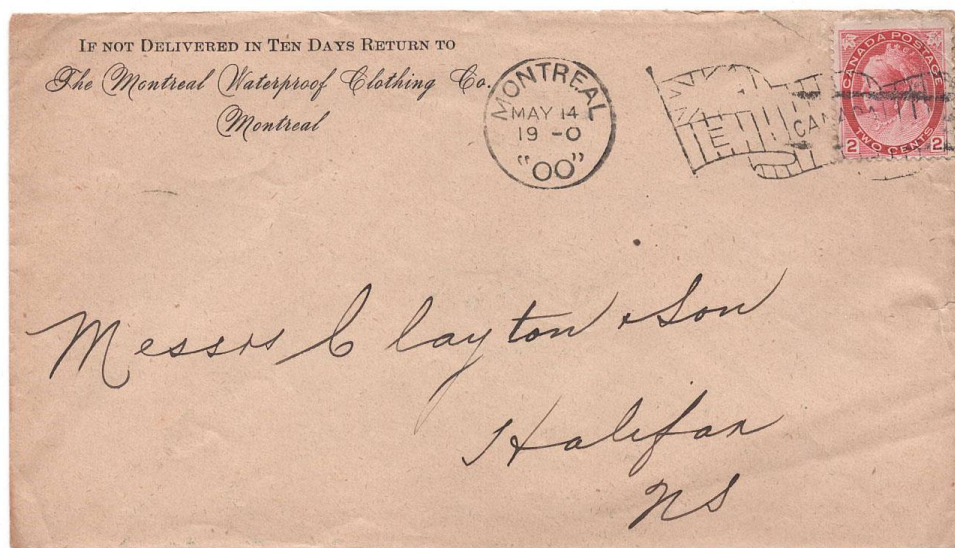 IF NOT DELIVERED IN TEN DAYS RETURN TO
The Montreal Waterproof Clothing Co.
Montreal
MONTREAL
MAY 14
19 -0
"00"
CANADA
CANADA POSTAGE
TWO CENTS
2 2
Messrs Clayton & Son
Halifax
NS